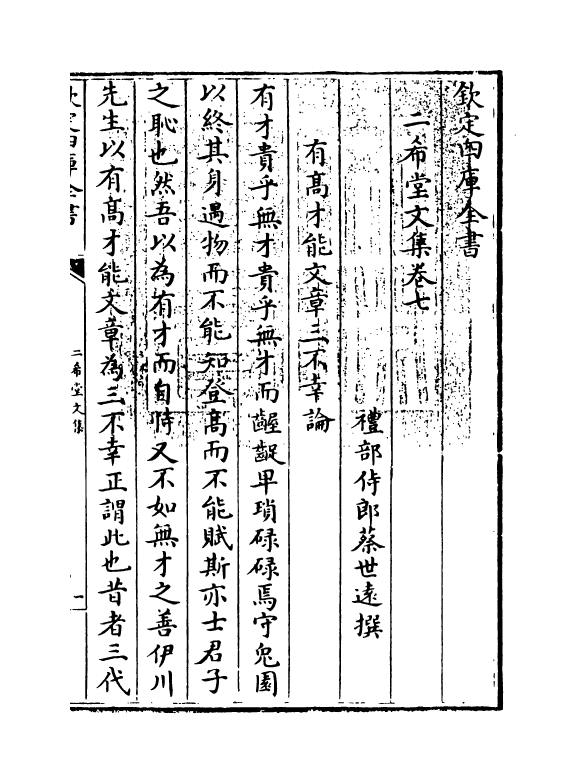 欽定四庫全書
二希堂文集卷七
禮部侍郎蔡世遠撰
有髙才能文章三不幸論
有才貴乎無才貴乎無才而齷齪卑瑣碌碌焉守兎園
以終其身遇物而不能知登髙而不能賦斯亦士君子
之恥也然吾以為有才而自恃又不如無才之善伊川
先生以有髙才能文章為三不幸正謂此也昔者三代
欽定四庫全書
二希堂文集
一